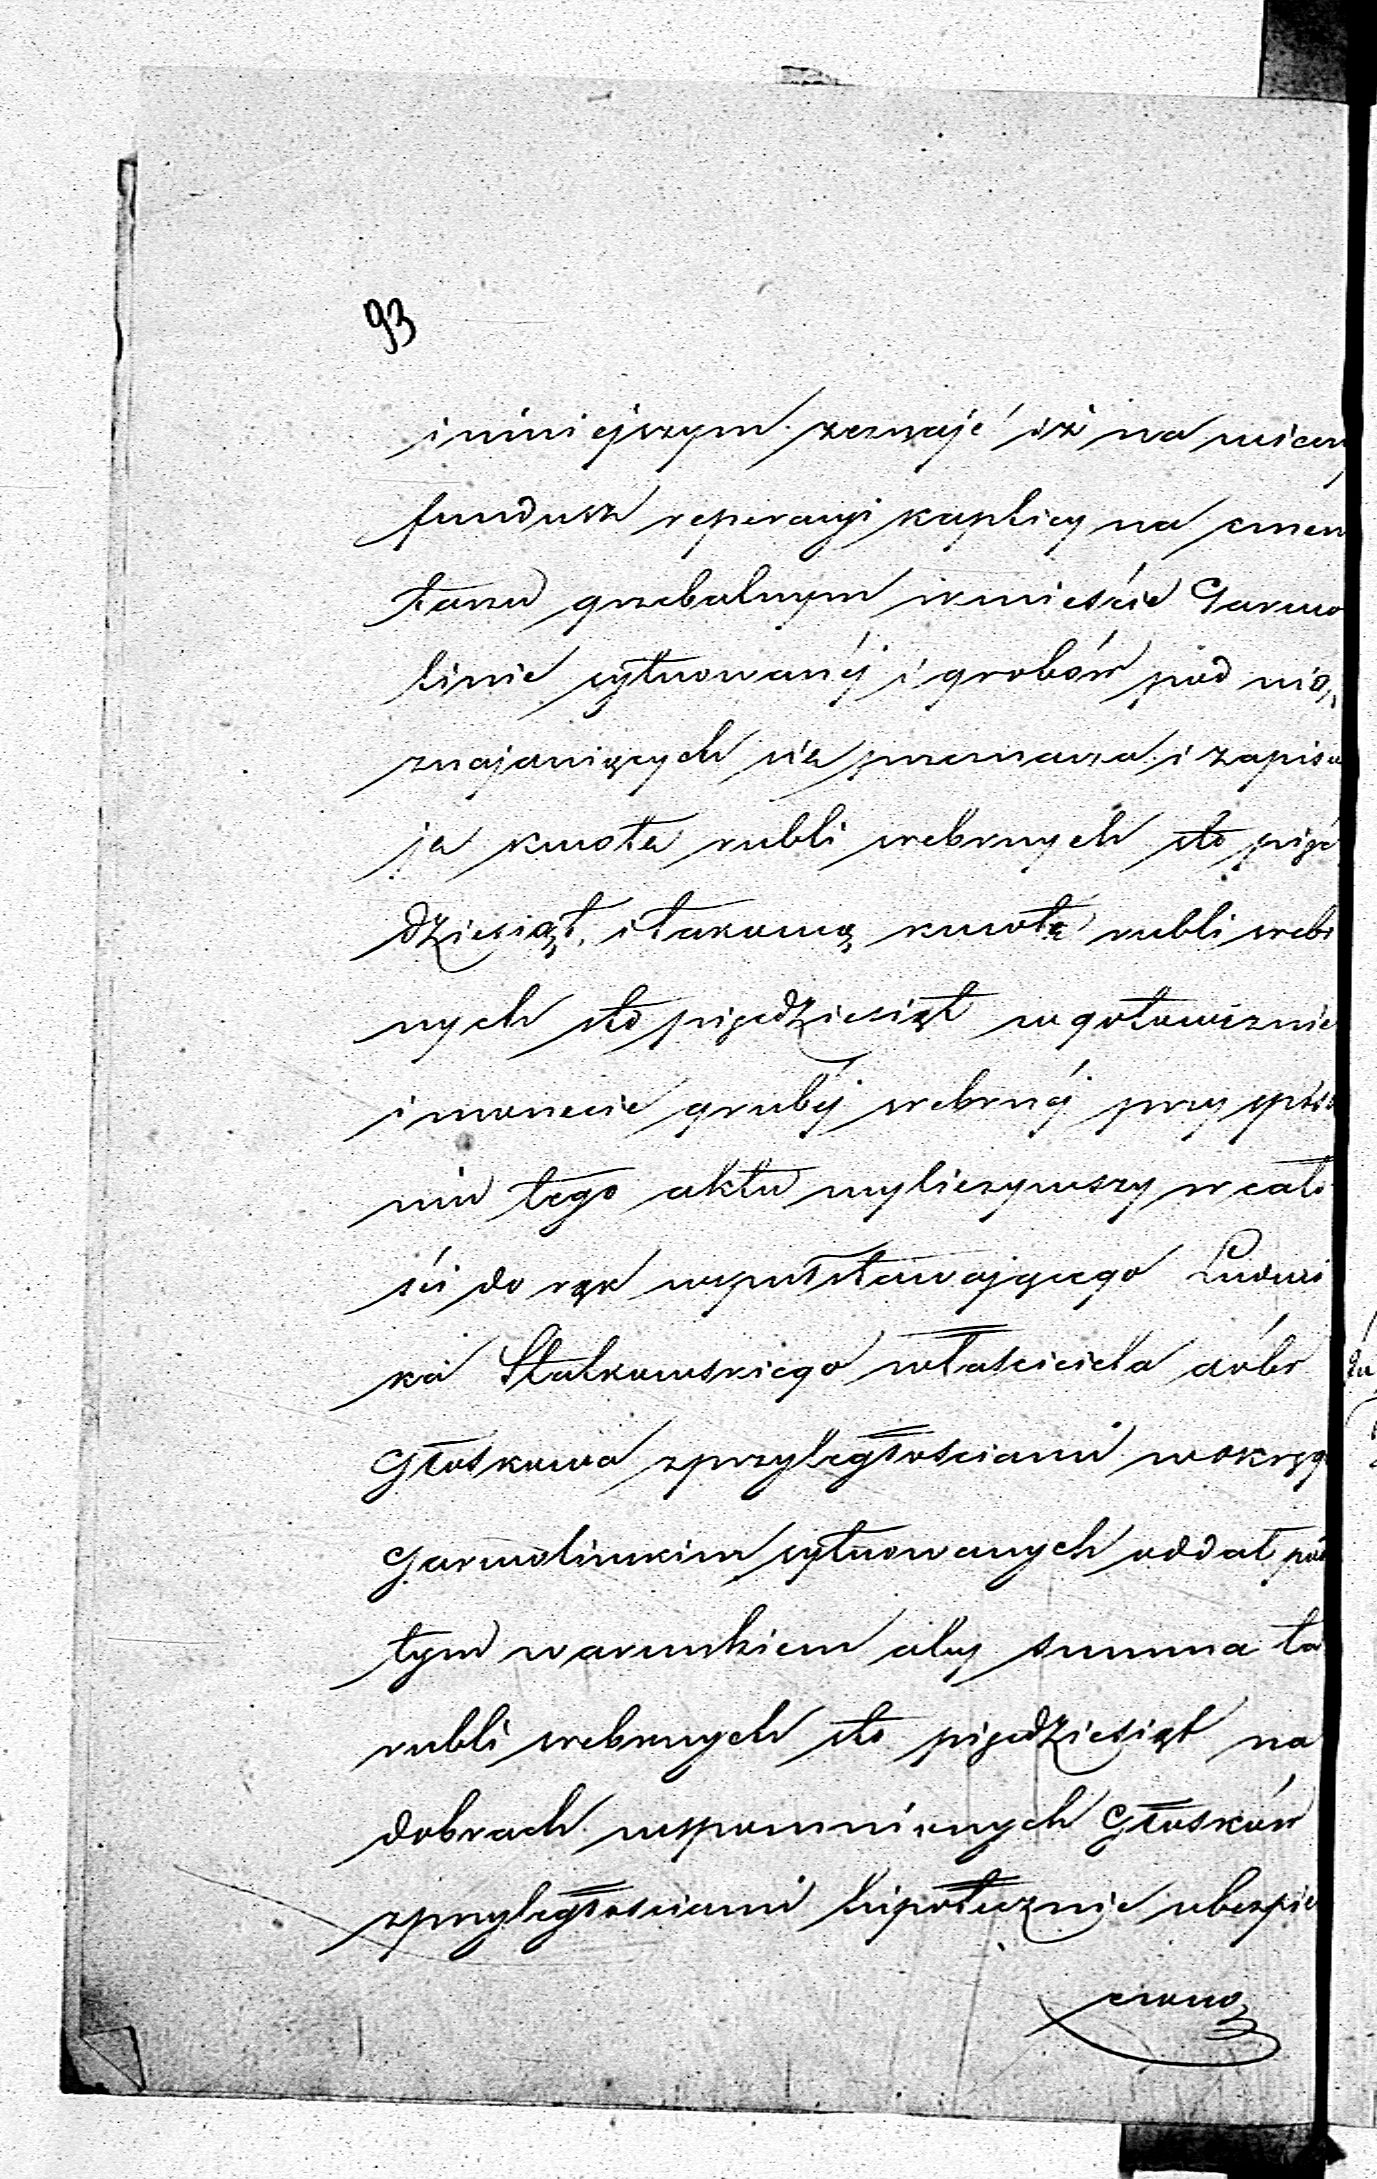 93
i niniejszym zeznaje iż na wieczny
fundusz reperacyi kaplicy na cmen
tarzu grzebalnym w mieście Garwo
linie sytuowanéj i grobów pod nią
znajdujących się przeznacza i zapisu
je kwotę rubli srebrnych sto pięć
dziesiąt, i takową kwotę rubli srebr
nych sto pięćdziesiąt w gotowiźnie
i monecie grubéj srebrnéj przy spisa
niu tego aktu wyliczywszy w cało
ści do rąk współstawającego Ludwi
ka Stalkowskiego właściciela dóbr
Głoskowa z przyległościami w okręgu
Garwolińskim sytuowanych oddał pod
tym warunkiem aby summa ta
rubli srebrnych sto pięćdziesiąt na
dobrach wspomnionych Głosków
z przyległościami hipotecznie ubezpie
czoną